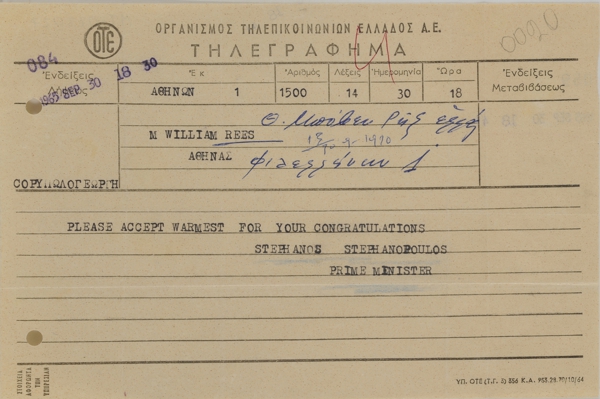 ΟΤΕ
ΟΡΓΑΝΙΣΜΟΣ ΤΗΛΕΠΙΚΟΙΝΩΝΙΩΝ ΕΛΛΑΔΟΣ Α.Ε.
ΤΗΛΕΓΡΑΦΗΜΑ
0020
084
1965 SEP. 30 18 30
Ἐνδείξεις
Ἐκ
Ἀριθμός
Λέξεις
Ἡμερομηνία
Ὥρα
Ἐνδείξεις
Μεταβιβάσεως
ΑΘΗΝΩΝ 1 1500 14 30 18
M WILLIAM REES
ΑΘΗΝΑΣ
ΣΟΡΥΠΩΛΟΓΕΩΡΓΗ
PLEASE ACCEPT WARMEST FOR YOUR CONGRATULATIONS
STEPHANOS STEPHANOPOULOS
PRIME MINISTER
ΥΠ. ΟΤΕ (Τ.Γ. 2) 856 Κ.Α. 953.29.70/10/64